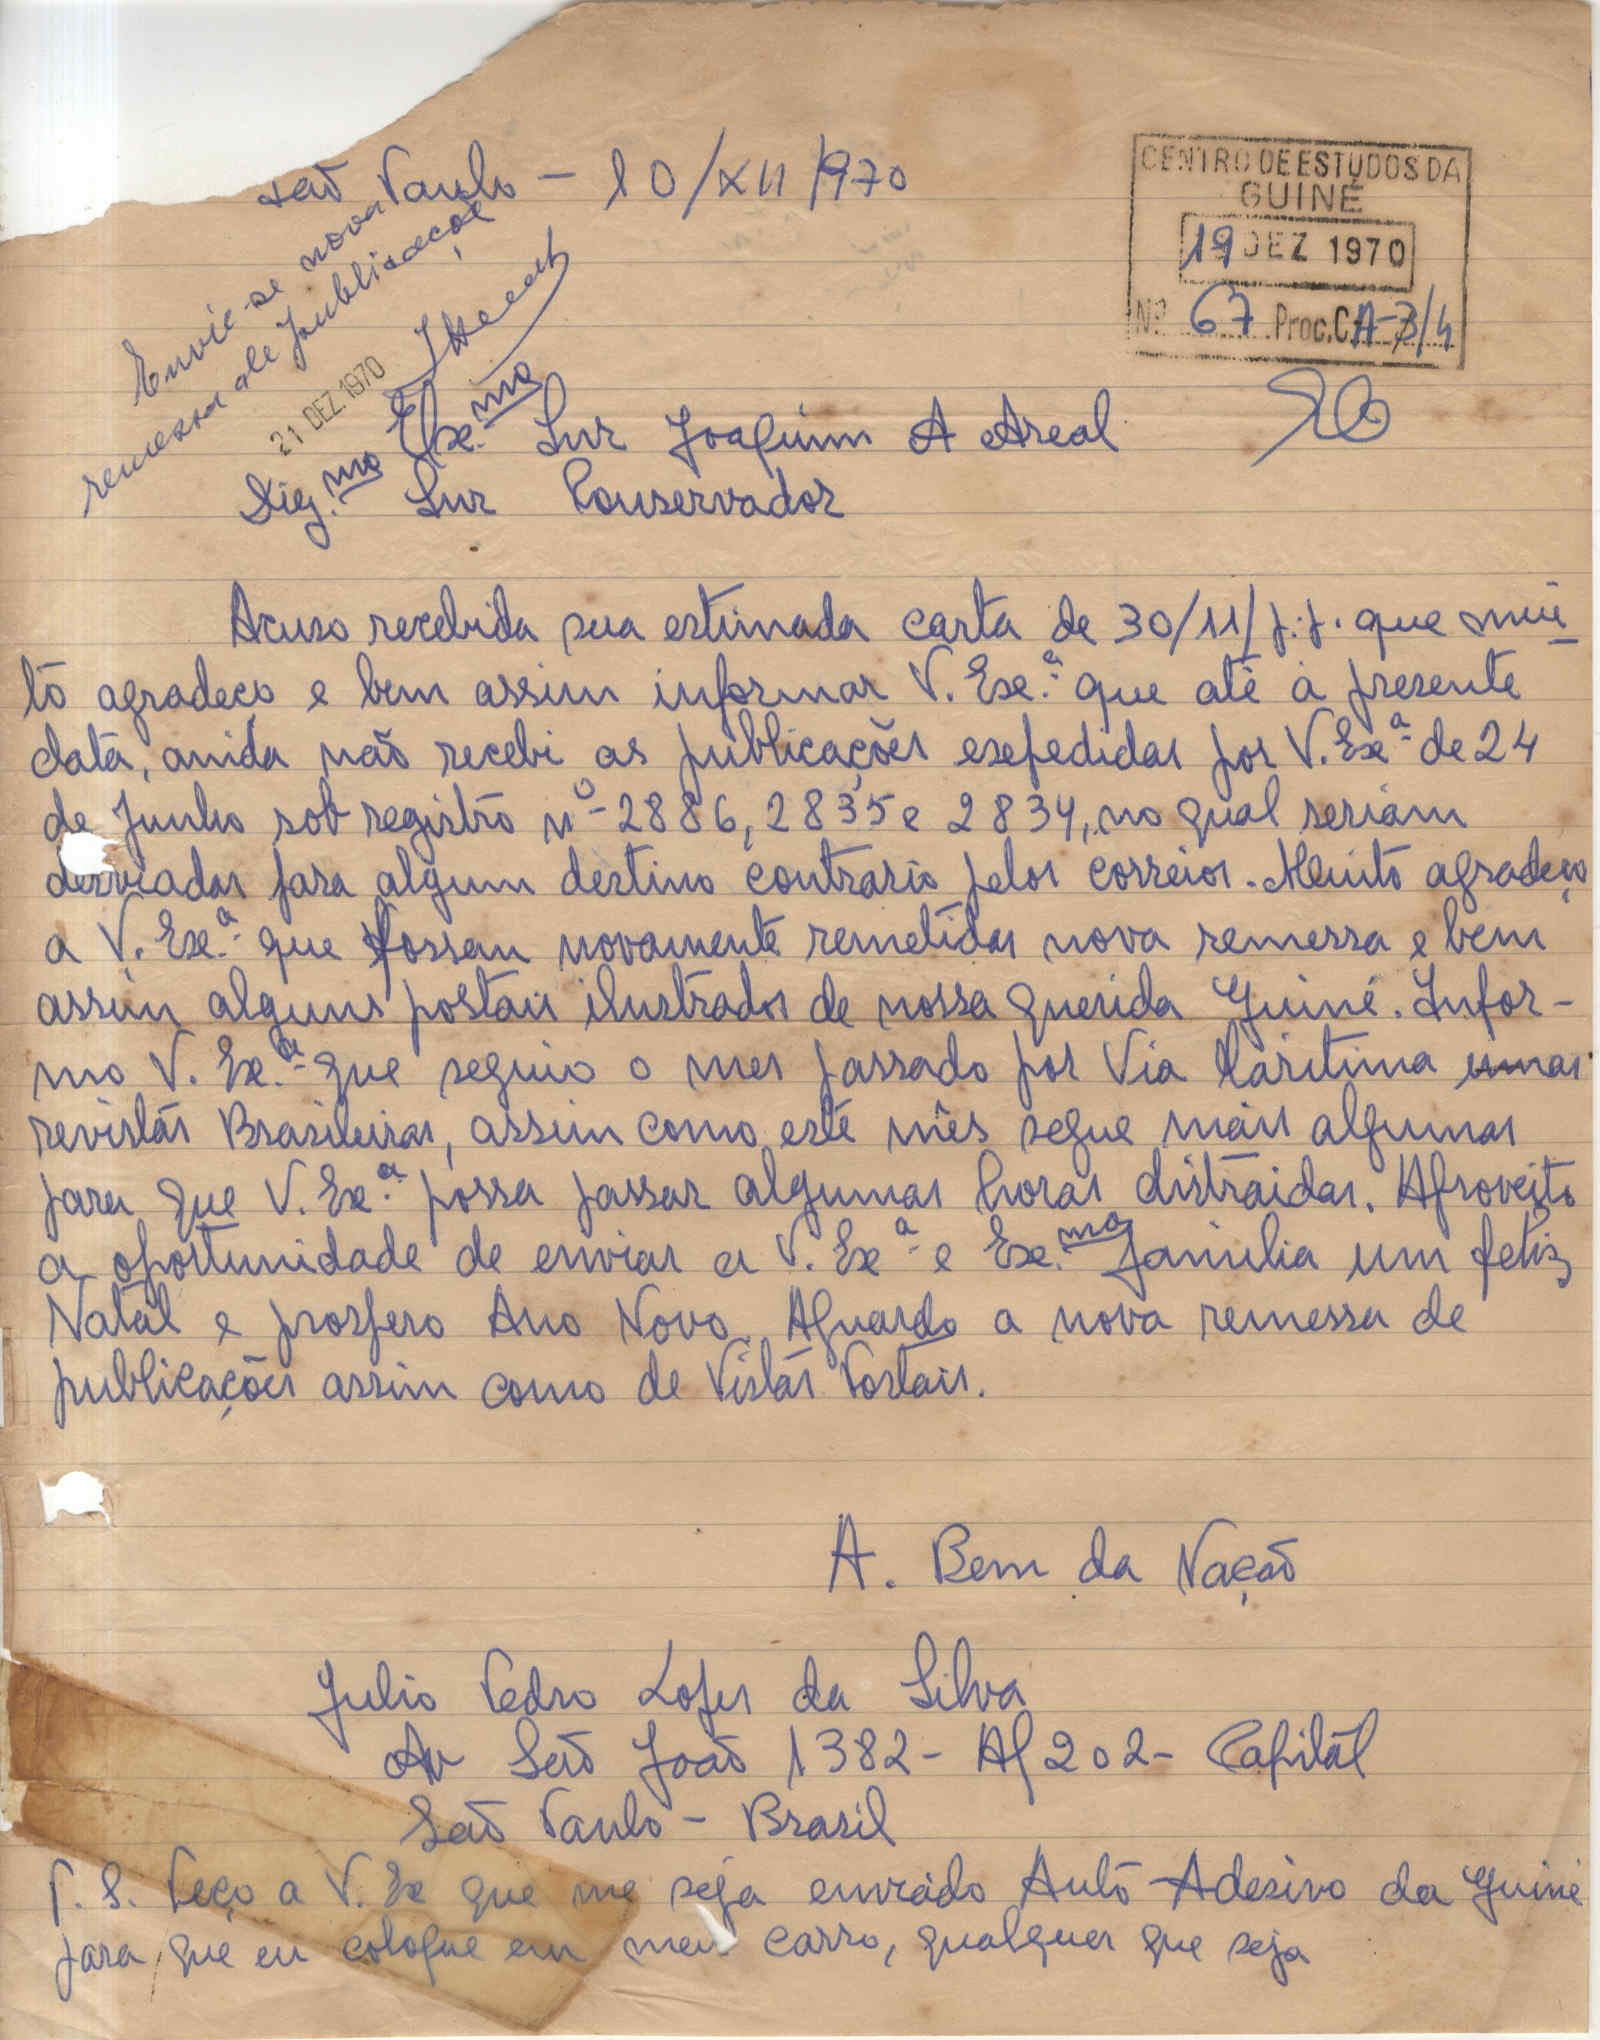 São Paulo - 10/XII/970
CENTRO DE ESTUDOS DA
GUINÉ
19 DEZ 1970
Nº 67 Proc.CA-3/4
Envie-se nova
remessa de publicações
21 DEZ. 1970
Exe.mo Snr Joaquim A Areal
Dig.mo Snr Conservador
Acuso recebida sua estimada carta de 30/11/p.p. que mui
to agradeço e bem assim informar V. Exe.ª que até a presente
data, ainda não recebi as publicações expedidas por V. Exª de 24
de Junho sob registro nº 2886, 2835 e 2834, no qual seriam
desviadas para algum destino contrario pelos correios. Muito agradeço
a V. Exe.ª que fossem novamente remetidas nova remessa e bem
assim alguns postais ilustrados de nossa querida Guiné. Infor-
mo V. Exe.ª que seguio o mes passado por Via Maritima umas
revistas Brasileiras, assim como este mês segue mais algumas
para que V. Exe.ª possa passar algumas horas distraidas. Aproveito
a oportunidade de enviar a V. Exª e Exe.ma familia um feliz
Natal e prospero Ano Novo. Aguardo a nova remessa de
publicações assim como de Vistas Postais.
A. Bem da Nação
Julio Pedro Lopes da Silva
Av São João 1382 - Ap 202 - Capital
São Paulo - Brasil
P. S. Peço a V. Ex que me seja enviado Auto-Adesivo da Guiné
para que eu coloque em meu carro, qualquer que seja